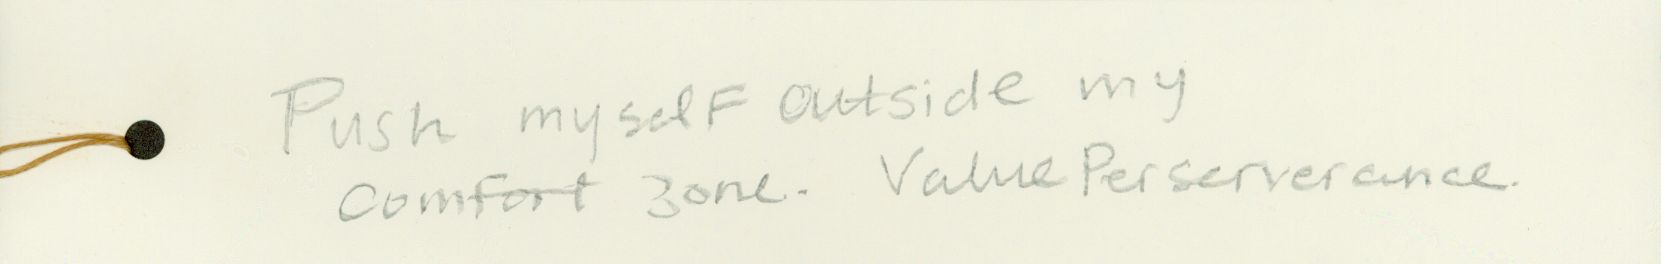 Push myself outside my
comfort zone. Value Perserverance.